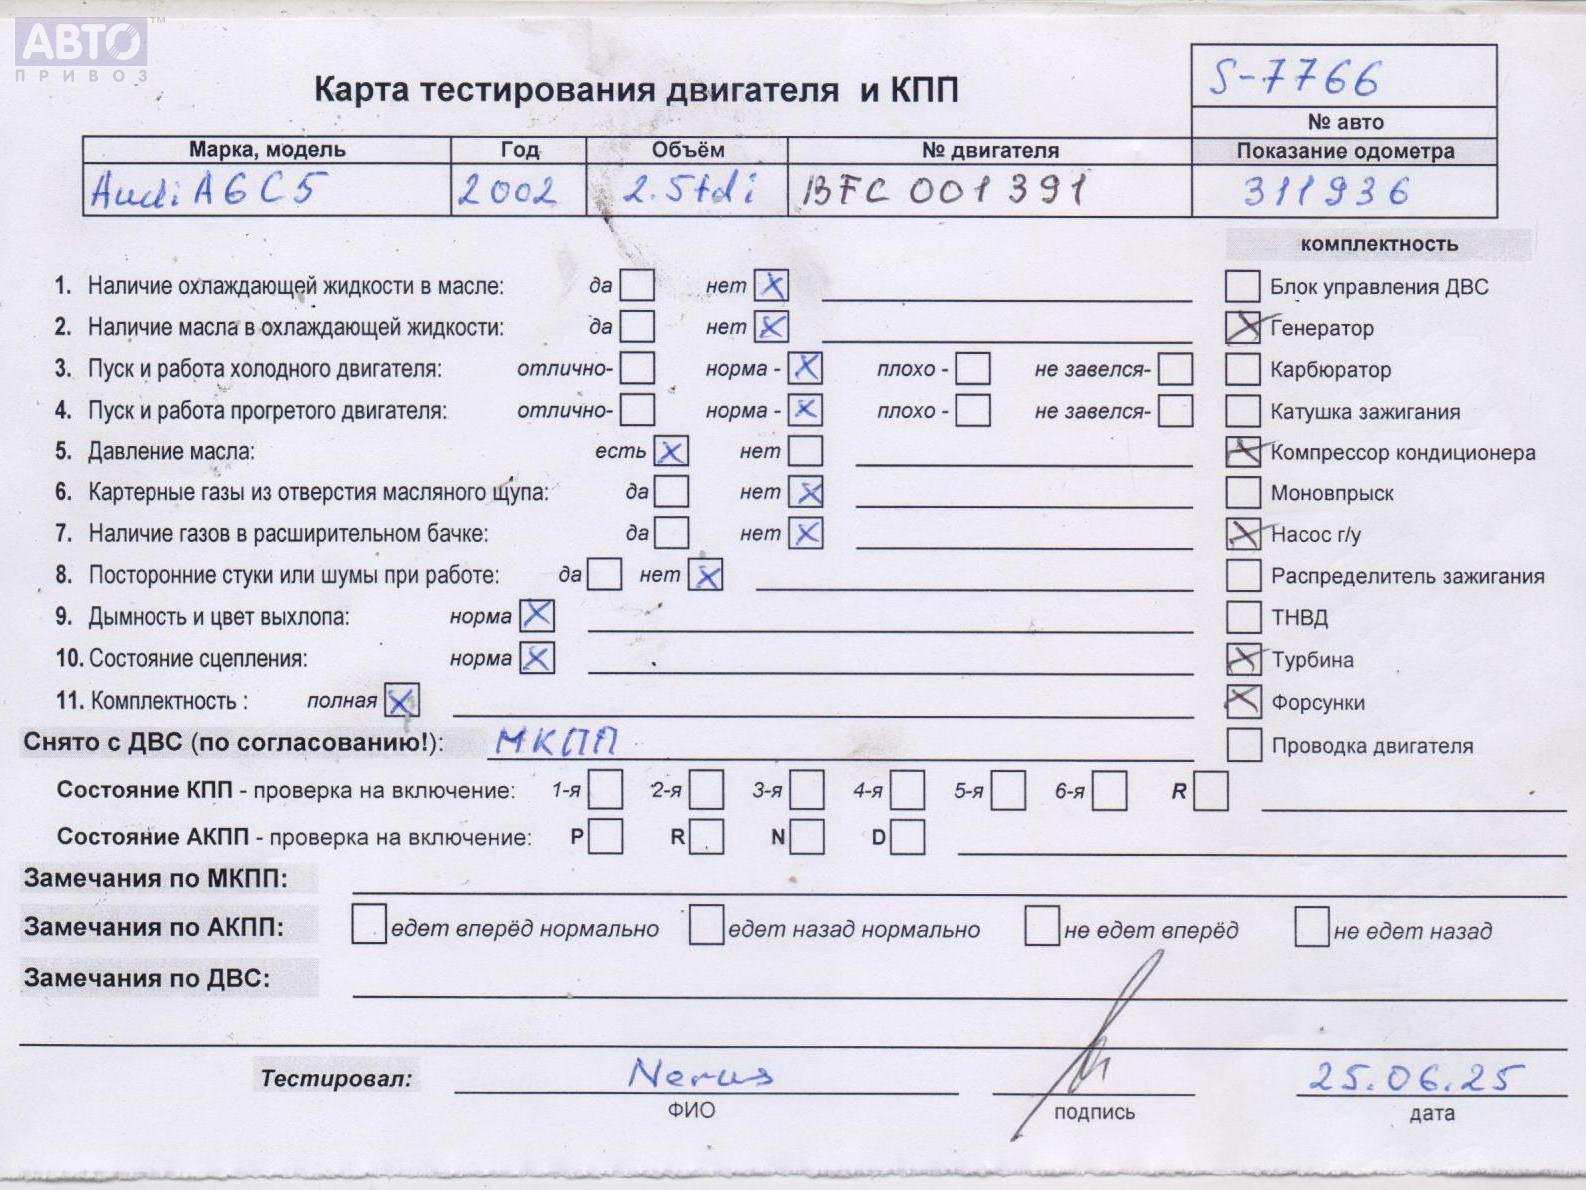 АВТО™
ПРИВОЗ
S-7766
Карта тестирования двигателя и КПП
№ авто
Марка, модель Год Объём № двигателя Показание одометра
Audi A6 C5 2002 2.5tdi BFC 001391 311936
комплектность
1. Наличие охлаждающей жидкости в масле: да нет X Блок управления ДВС
2. Наличие масла в охлаждающей жидкости: да нет X X Генератор
3. Пуск и работа холодного двигателя: отлично- норма - X плохо - не завелся- Карбюратор
4. Пуск и работа прогретого двигателя: отлично- норма - X плохо - не завелся- Катушка зажигания
5. Давление масла: есть X нет X Компрессор кондиционера
6. Картерные газы из отверстия масляного щупа: да нет X Моновпрыск
7. Наличие газов в расширительном бачке: да нет X X Насос г/у
8. Посторонние стуки или шумы при работе: да нет X Распределитель зажигания
9. Дымность и цвет выхлопа: норма X ТНВД
10. Состояние сцепления: норма X X Турбина
11. Комплектность : полная X X Форсунки
Снято с ДВС (по согласованию!): МКПП Проводка двигателя
Состояние КПП - проверка на включение: 1-я 2-я 3-я 4-я 5-я 6-я R
Состояние АКПП - проверка на включение: P R N D
Замечания по МКПП:
Замечания по АКПП: едет вперёд нормально едет назад нормально не едет вперёд не едет назад
Замечания по ДВС:
Тестировал: 25.06.25
ФИО подпись дата